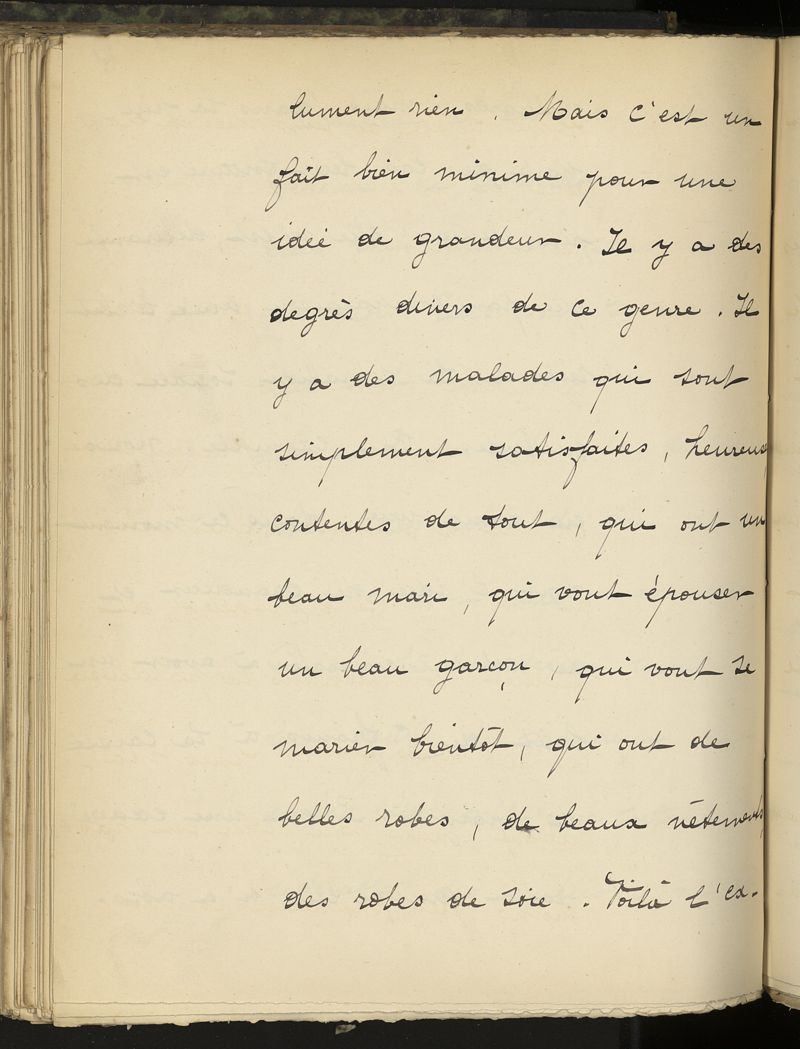 lument rien. Mais c'est un
fait bien minime pour une
idée de grandeur. Il y a des
degrès divers de ce genre. Il
y a des malades qui sont
simplement satisfaites, heureus
contentes de tout, qui ont un
beau mari, qui vont épouser
un beau garçon, qui vont se
marier bientôt, qui ont de
belles robes, de beaux vêtements,
des robes de soie. Voilà l'ex-